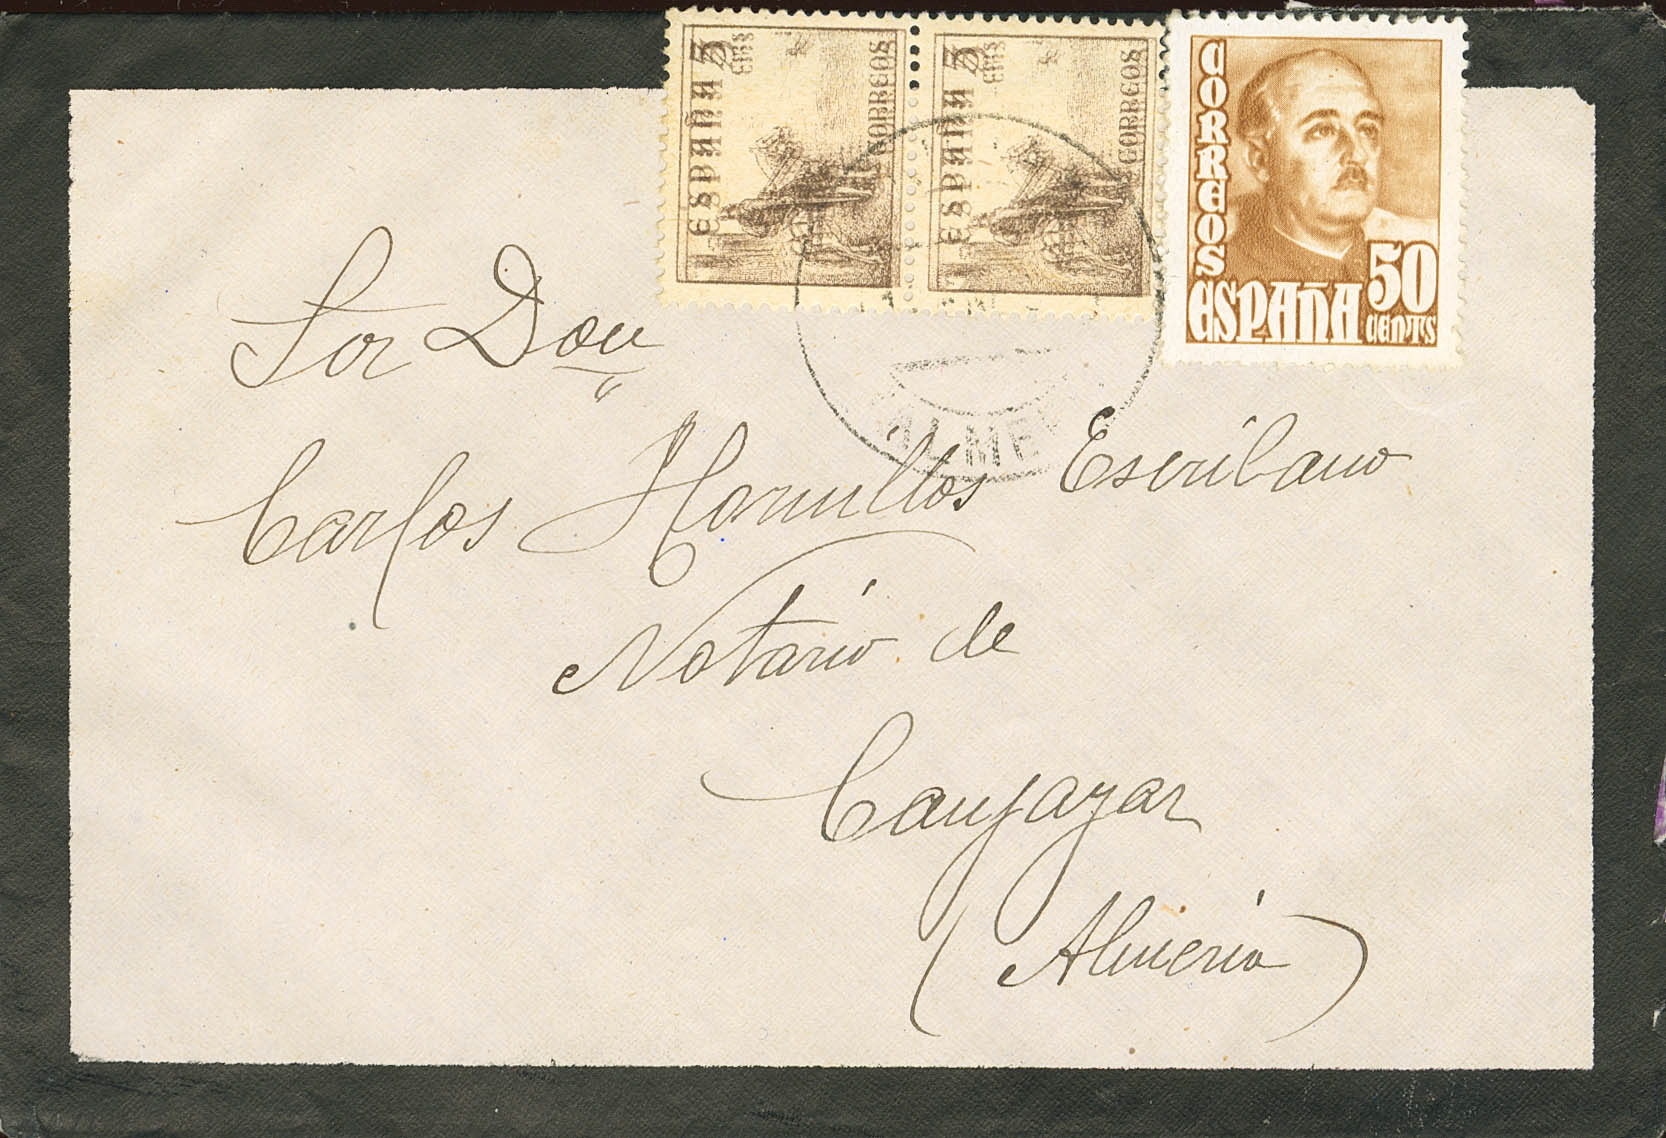 ESPAÑA 5 CTS
CORREOS
ESPAÑA 5 CTS
CORREOS
CORREOS
ESPAÑA 50 CENTS
ALMER
Sor Don
Carlos Hornillos Escribano
Notario de
Canjayar
(Almeria)